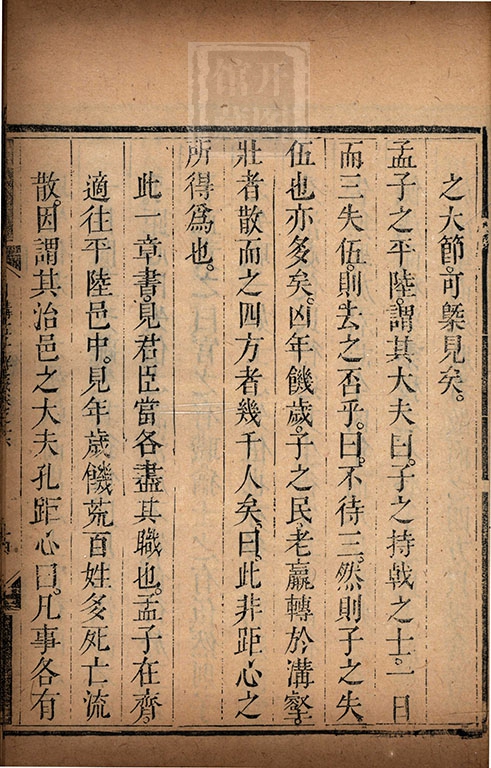 之大節可槩見矣。
孟子之平陸。謂其大夫曰。子之持戟之士。一日
而三失伍。則去之否乎。曰。不待三。然則子之失
伍也亦多矣。凶年饑歲。子之民。老羸轉於溝壑。
壯者散而之四方者幾千人矣。曰。此非距心之
所得爲也。
此一章書。見君臣當各盡其職也。孟子在齊。
適往平陸邑中。見年歲饑荒百姓多死亡流
散。因謂其治邑之大夫孔距心曰。凡事各有